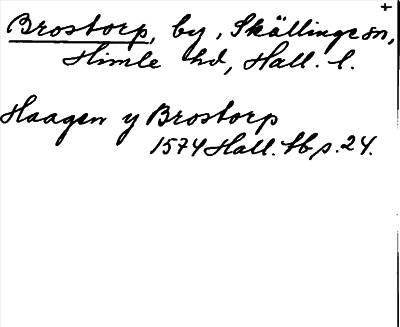 Brostorp, by, Skällinge sn,
Himle hd, Hall. l.
Haagen y Brostorp
1574 Hall. tb s. 24.